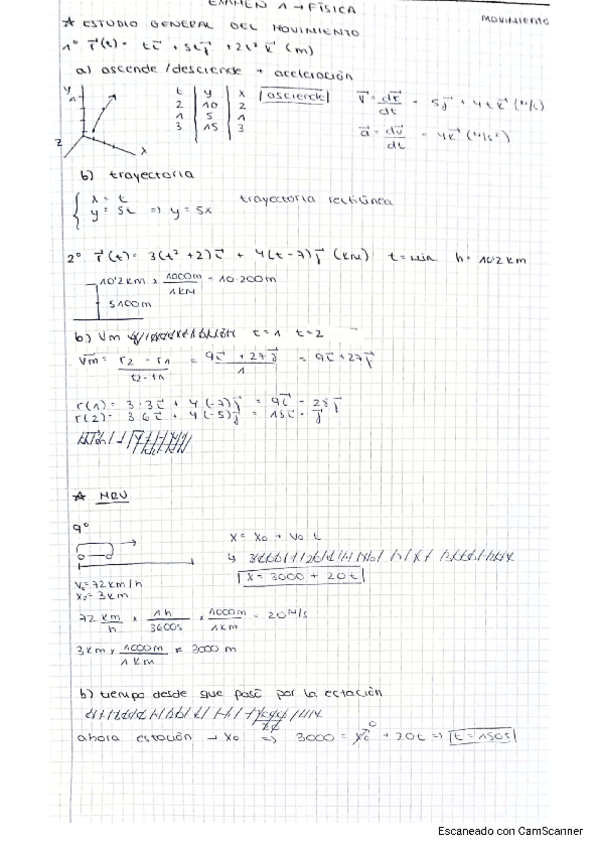 EXAMEN 1 → FÍSICA
MOVIMIENTO
☆ ESTUDIO GENERAL DEL MOVIMIENTO
1º r(t) = ti + 5tj + 2t² k (m)
a) asciende / desciende + aceleración
y
1
z
x
t | y | x
2 | 10 | 2
1 | 5 | 1
3 | 15 | 3
asciende
v = dr/dt = 5j + 4tk (m/s)
a = dv/dt = 4k (m/s²)
b) trayectoria
x = t
y = 5t => y = 5x
trayectoria rectilínea
2º r(t) = 3(t² + 2)i + 4(t - 7)j (km) t = min h = 10'2 km
10'2 km x 1000m/1km = 10.200m
5100m
b) Vm t = 1 t = 2
Vm = r2 - r1 / t2 - t1 = 9i + 27j / 1 = 9i + 27j
r(1) = 3·3i + 4(-7)j = 9i - 28j
r(2) = 3·6i + 4(-5)j = 18i - j
☆ MRU
9º
x = x0 + v0 t
x = 3000 + 20t
v0 = 72 km/h
x0 = 3 km
72 km/h x 1h/3600s x 1000m/1km = 20 m/s
3 km x 1000m/1km = 3000 m
b) tiempo desde que pasó por la estación
ahora estación → x0 => 3000 = x0 0 + 20t => t = 150s
Escaneado con CamScanner